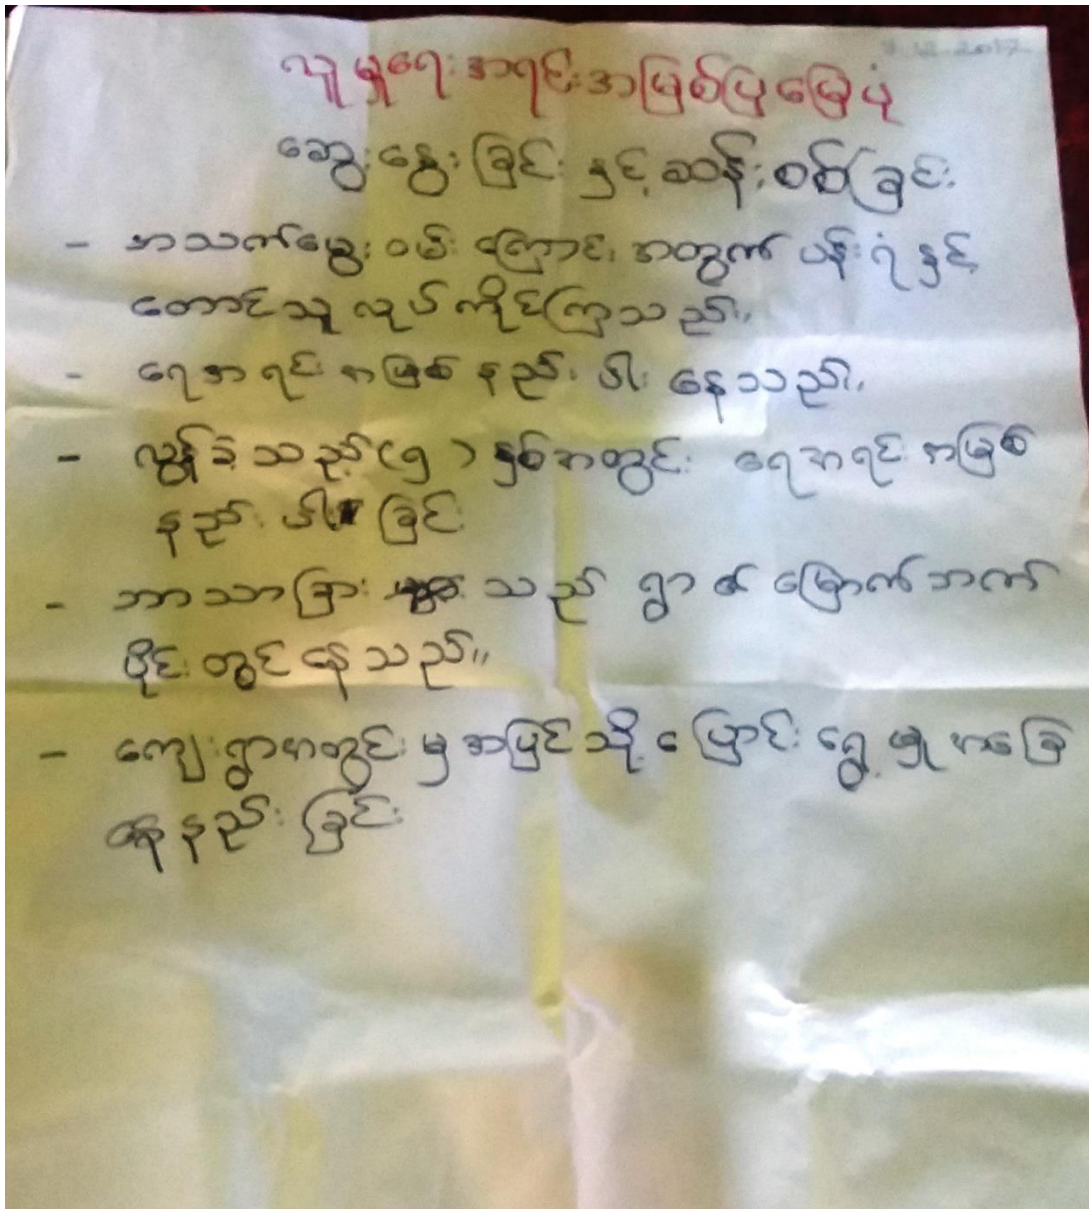 7.12.2017
လူမှုရေးအရင်းအမြစ်ပြမြေပုံ
ဆွေးနွေးခြင်းနှင့်ဆန်းစစ်ခြင်း
- အသက်မွေးဝမ်းကြောင်းအတွက် ပန်းရံနှင့်
တောင်သူလုပ်ကိုင်ကြသည်။
- ရေအရင်းအမြစ်နည်းပါးနေသည်။
- လွန်ခဲ့သည့်(၅)နှစ်အတွင်း ရေအရင်းအမြစ်
နည်းပါးခြင်း
- ဘာသာခြား သည် ရွာ၏မြောက်ဘက်
ပိုင်းတွင်နေသည်။
- ကျေးရွာအတွင်းမှအပြင်သို့ပြောင်းရွှေ့မှုအခြေ
နေနည်းခြင်း